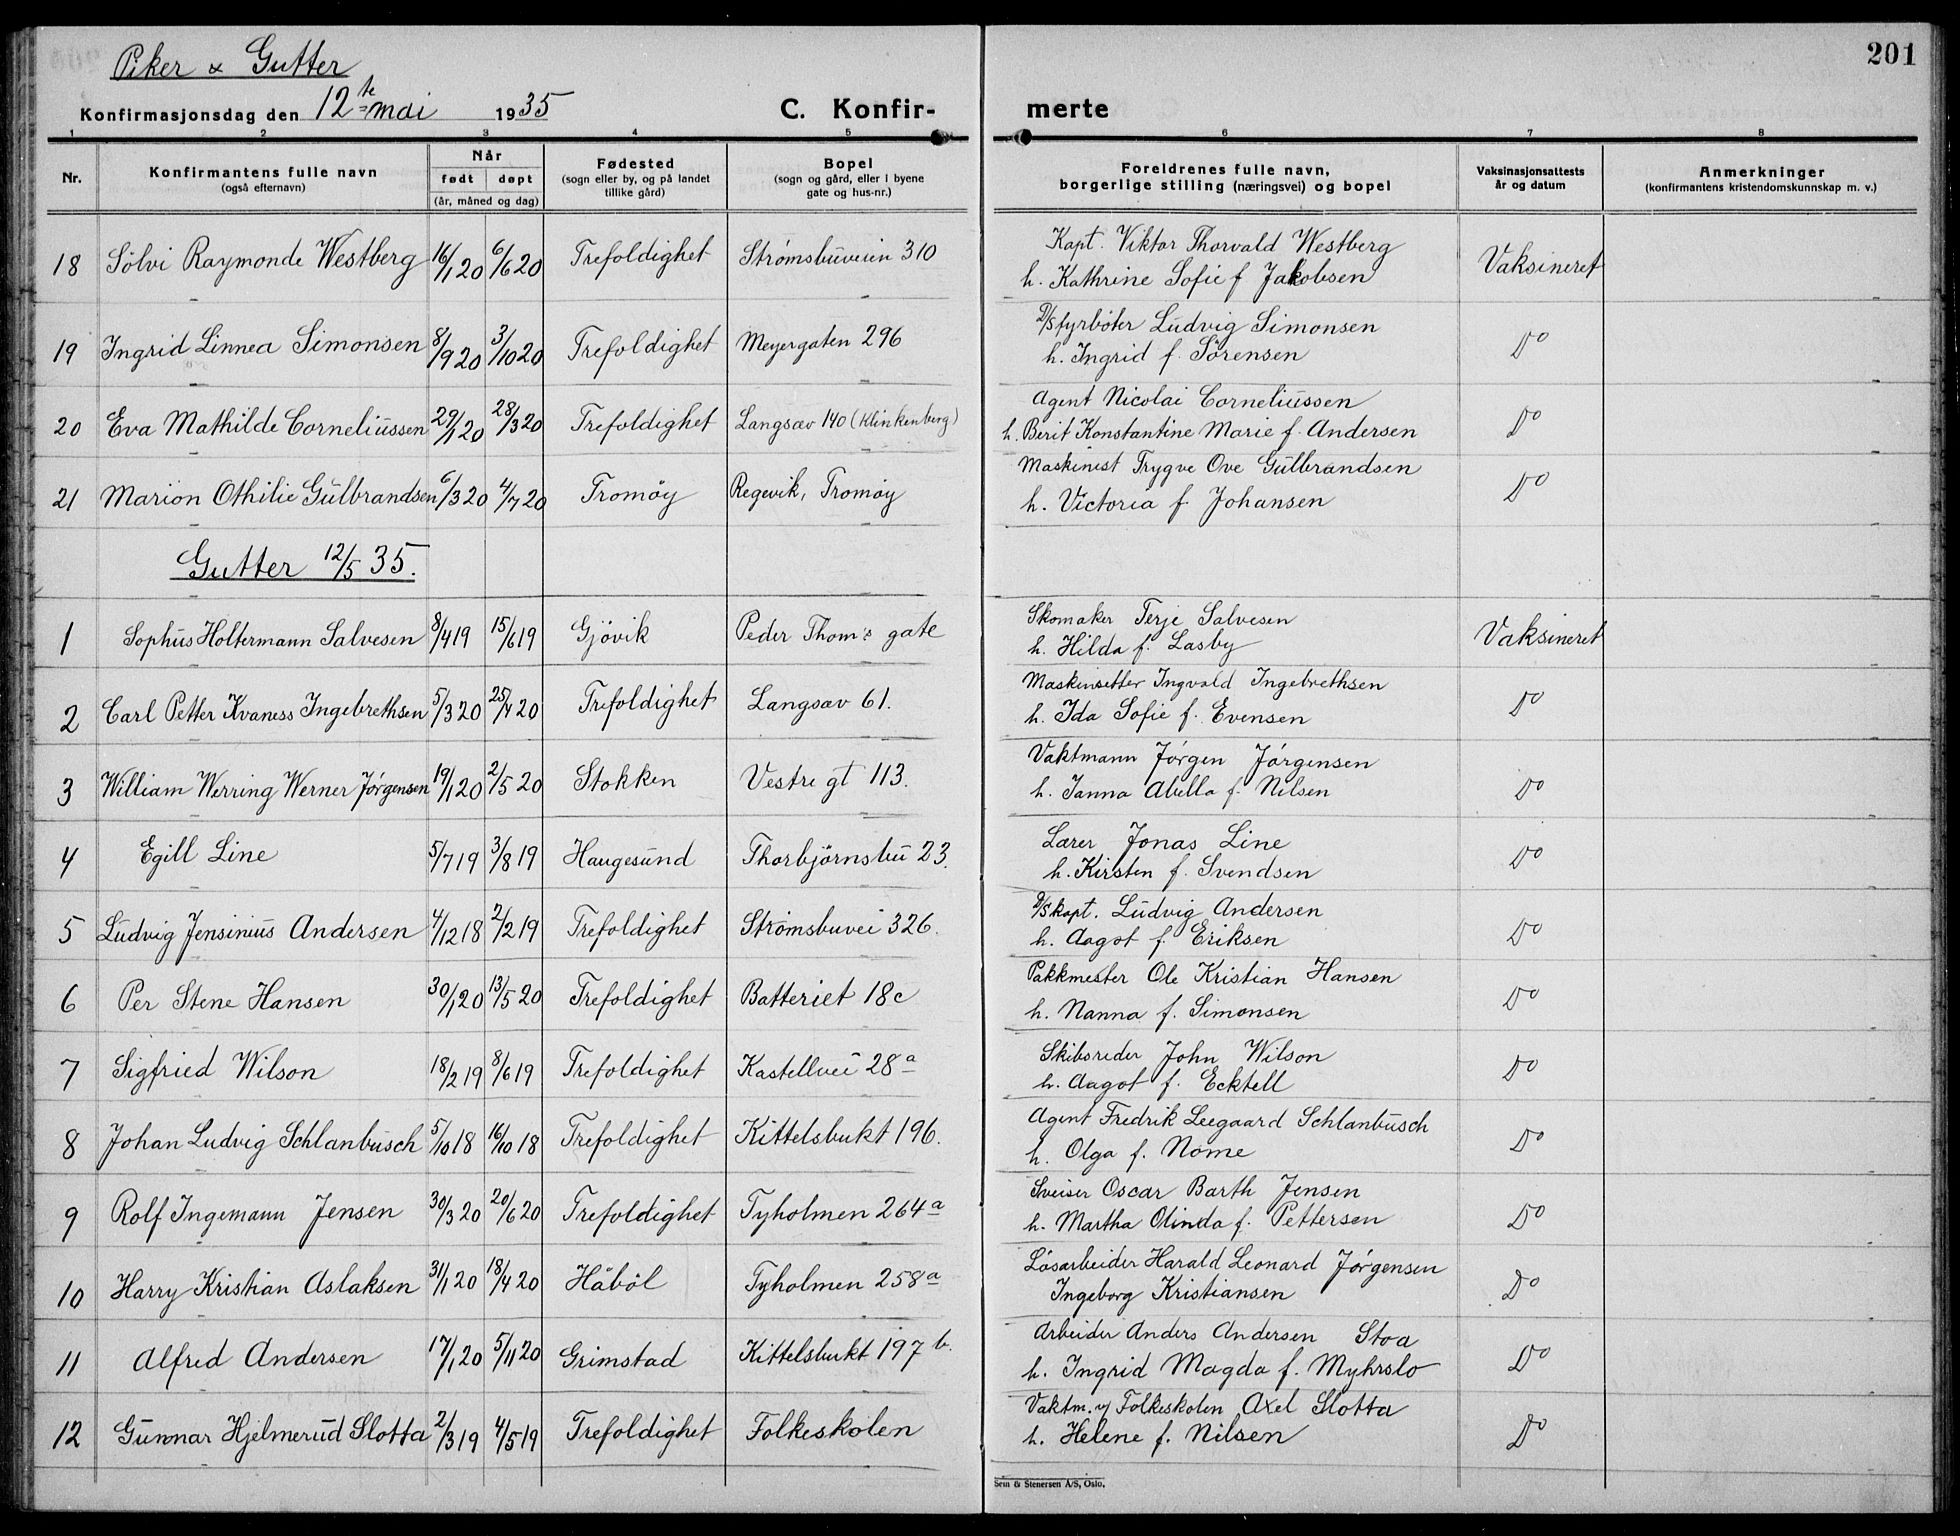 Piker & Gutter
201
Konfirmasjonsdag den 12te mai 1935
C. Konfir-
merte
1 2 3 4 5 6 7 8
Nr.
Konfirmantens fulle navn
(også efternavn)
Når
født døpt
(år, måned og dag)
Fødested
(sogn eller by, og på landet
tillike gård)
Bopel
(sogn og gård, eller i byene
gate og hus-nr.)
Foreldrenes fulle navn,
borgerlige stilling (næringsvei) og bopel
Vaksinasjonsattests
år og datum
Anmerkninger
(konfirmantens kristendomskunnskap m. v.)
18 Sölvi Raymonde Westberg 16/1 20 6/6 20 Trefoldighet Strømsbuveien 310 Kapt. Viktor Thorvald Westberg Vaksineret
h. Kathrine Sofie f Jakobsen
19 Ingrid Linnea Simonsen 8/9 20 3/10 20 Trefoldighet Meyergaten 296 D/S fyrböter Ludvig Simonsen Do
h. Ingrid f. Sörensen
20 Eva Mathilde Corneliussen 29/1 20 28/3 20 Trefoldighet Langsæv 140 (Klinkenberg) Agent Nicolai Corneliussen Do
h. Berit Konstantine Marie f. Andersen
21 Marion Othilie Gulbrandsen 6/3 20 4/7 20 Tromøy Regevik, Tromøy Maskinist Trygve Ove Gulbrandsen Do
h. Victoria f. Johansen
Gutter 12/5 35.
1 Sophus Holtermann Salvesen 8/4 19 15/6 19 Gjövik Peder Thom's gate Skomaker Terje Salvesen Vaksineret
h. Hilda f. Lasby
2 Carl Petter Kvaness Ingebrethsen 5/3 20 25/4 20 Trefoldighet Langsæv 61. Maskinsetter Ingvald Ingebrethsen Do
h. Ida Sofie f. Evensen
3 William Werring Werner Jørgensen 19/1 20 2/5 20 Stokken Vestre gt 113. Vaktmann Jørgen Jørgensen Do
h. Janna Abella f. Nilsen
4 Egill Line 5/7 19 3/8 19 Haugesund Thorbjørnsbu 23. Lærer Jonas Line Do
h. Kirsten f. Svendsen
5 Ludvig Jensinius Andersen 4/12 18 2/2 19 Trefoldighet Strømsbuvei 326. D/S kapt. Ludvig Andersen Do
h. Aagot f. Eriksen
6 Per Stene Hansen 30/1 20 13/5 20 Trefoldighet Batteriet 18c Pakkmester Ole Kristian Hansen Do
h. Nanna f. Simonsen
7 Sigfried Wilson 18/2 19 8/6 19 Trefoldighet Kastellvei 28a Skibsreder John Wilson Do
h. Aagot f. Ecktell
8 Johan Ludvig Schlanbusch 5/10 18 16/10 18 Trefoldighet Kittelsbukt 196. Agent Fredrik Leegaard Schlanbusch Do
h. Olga f. Nome
9 Rolf Ingemann Jensen 30/3 20 20/6 20 Trefoldighet Tyholmen 264a Sveiser Oscar Barth Jensen Do
h. Martha Olinda f. Pettersen
10 Harry Kristian Aslaksen 31/1 20 18/4 20 Håböl Tyholmen 258a Lösarbeider Harald Leonard Jørgensen Do
Ingeborg Kristiansen
11 Alfred Andersen 17/1 20 5/11 20 Grimstad Kittelsbukt 197 b. Arbeider Anders Andersen Stoa Do
h. Ingrid Magda f. Myhrslo
12 Gunnar Hjelmerud Slotta 2/3 19 4/5 19 Trefoldighet Folkeskolen Vaktm. v/ Folkeskolen Axel Slotta Do
h. Helene f. Nilsen
Sem & Stenersen A/S, Oslo.